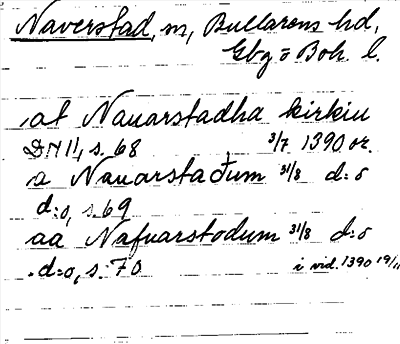 Naverstad, sn, Bullarens hd,
Gbg o Boh. l.
at Nauarstadha kirkiu
DN 11, s. 68 3/7 1390 or.
a Nauarstaðum 31/8 d:o
d:o, s. 69
aa Nafuarstodum 31/8 d:o
d:o, s. 70 i vid. 1390 19/11